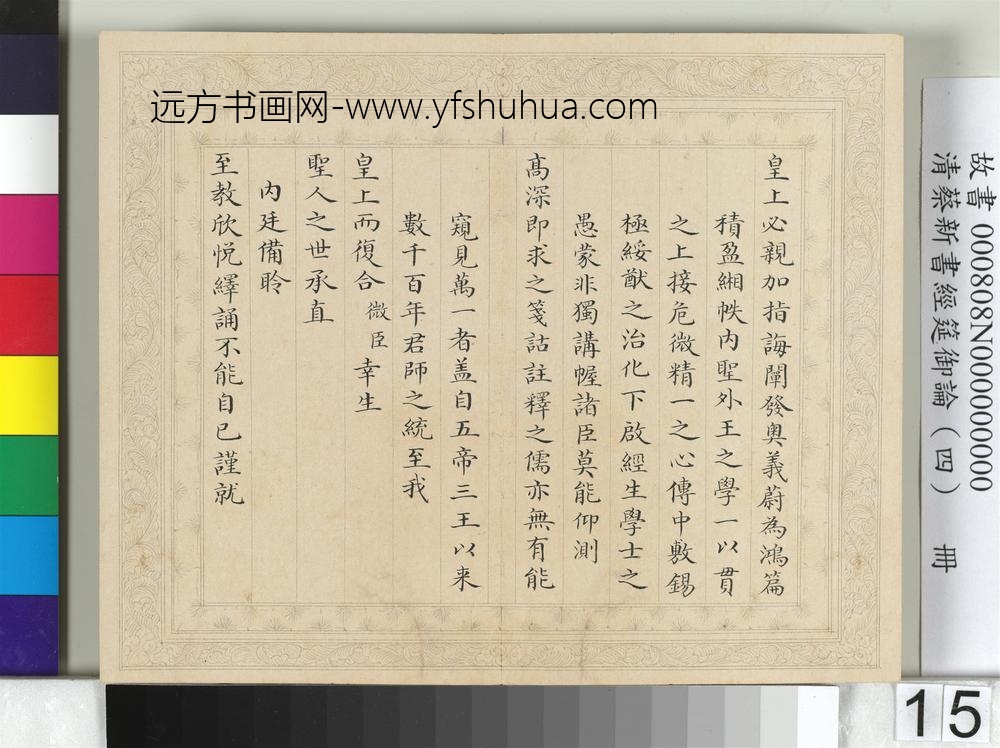 远方书画网-www.yfshuhua.com
皇上必親加指誨闡發奧義蔚為鴻篇
積盈緗帙內聖外王之學一以貫
之上接危微精一之心傳中敷錫
極綏猷之治化下啟經生學士之
愚蒙非獨講幄諸臣莫能仰測
高深即求之箋詁註釋之儒亦無有能
窺見萬一者盖自五帝三王以来
數千百年君師之統至我
皇上而復合微臣幸生
聖人之世承直
內廷備聆
至教欣悅繹誦不能自已謹就
故書 000808N000000000
清蔡新書經筵御論（四） 冊
15